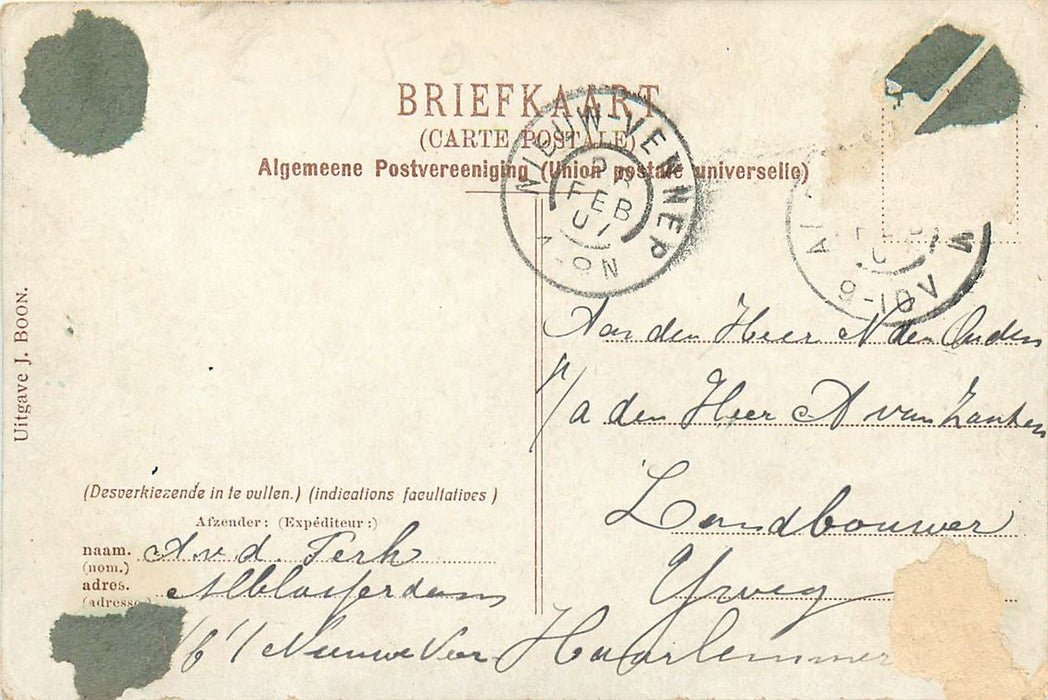 BRIEFKAART
(CARTE POSTALE)
Algemeene Postvereeniging (Union postale universelle)
NIEUW-VENNEP
FEB
07
-8N
9-10V
Aan den Heer N den Ouden
p/a den Heer A van Zanten
Landbouwer
Yweg
Haarlemmer
Uitgave J. BOON.
(Desverkiezende in te vullen.) (indications facultatives)
Afzender: (Expéditeur:)
naam. A. v. d. Terk
(nom.)
adres. Alblasserdam
(adresse)
't Nieuwe Veer